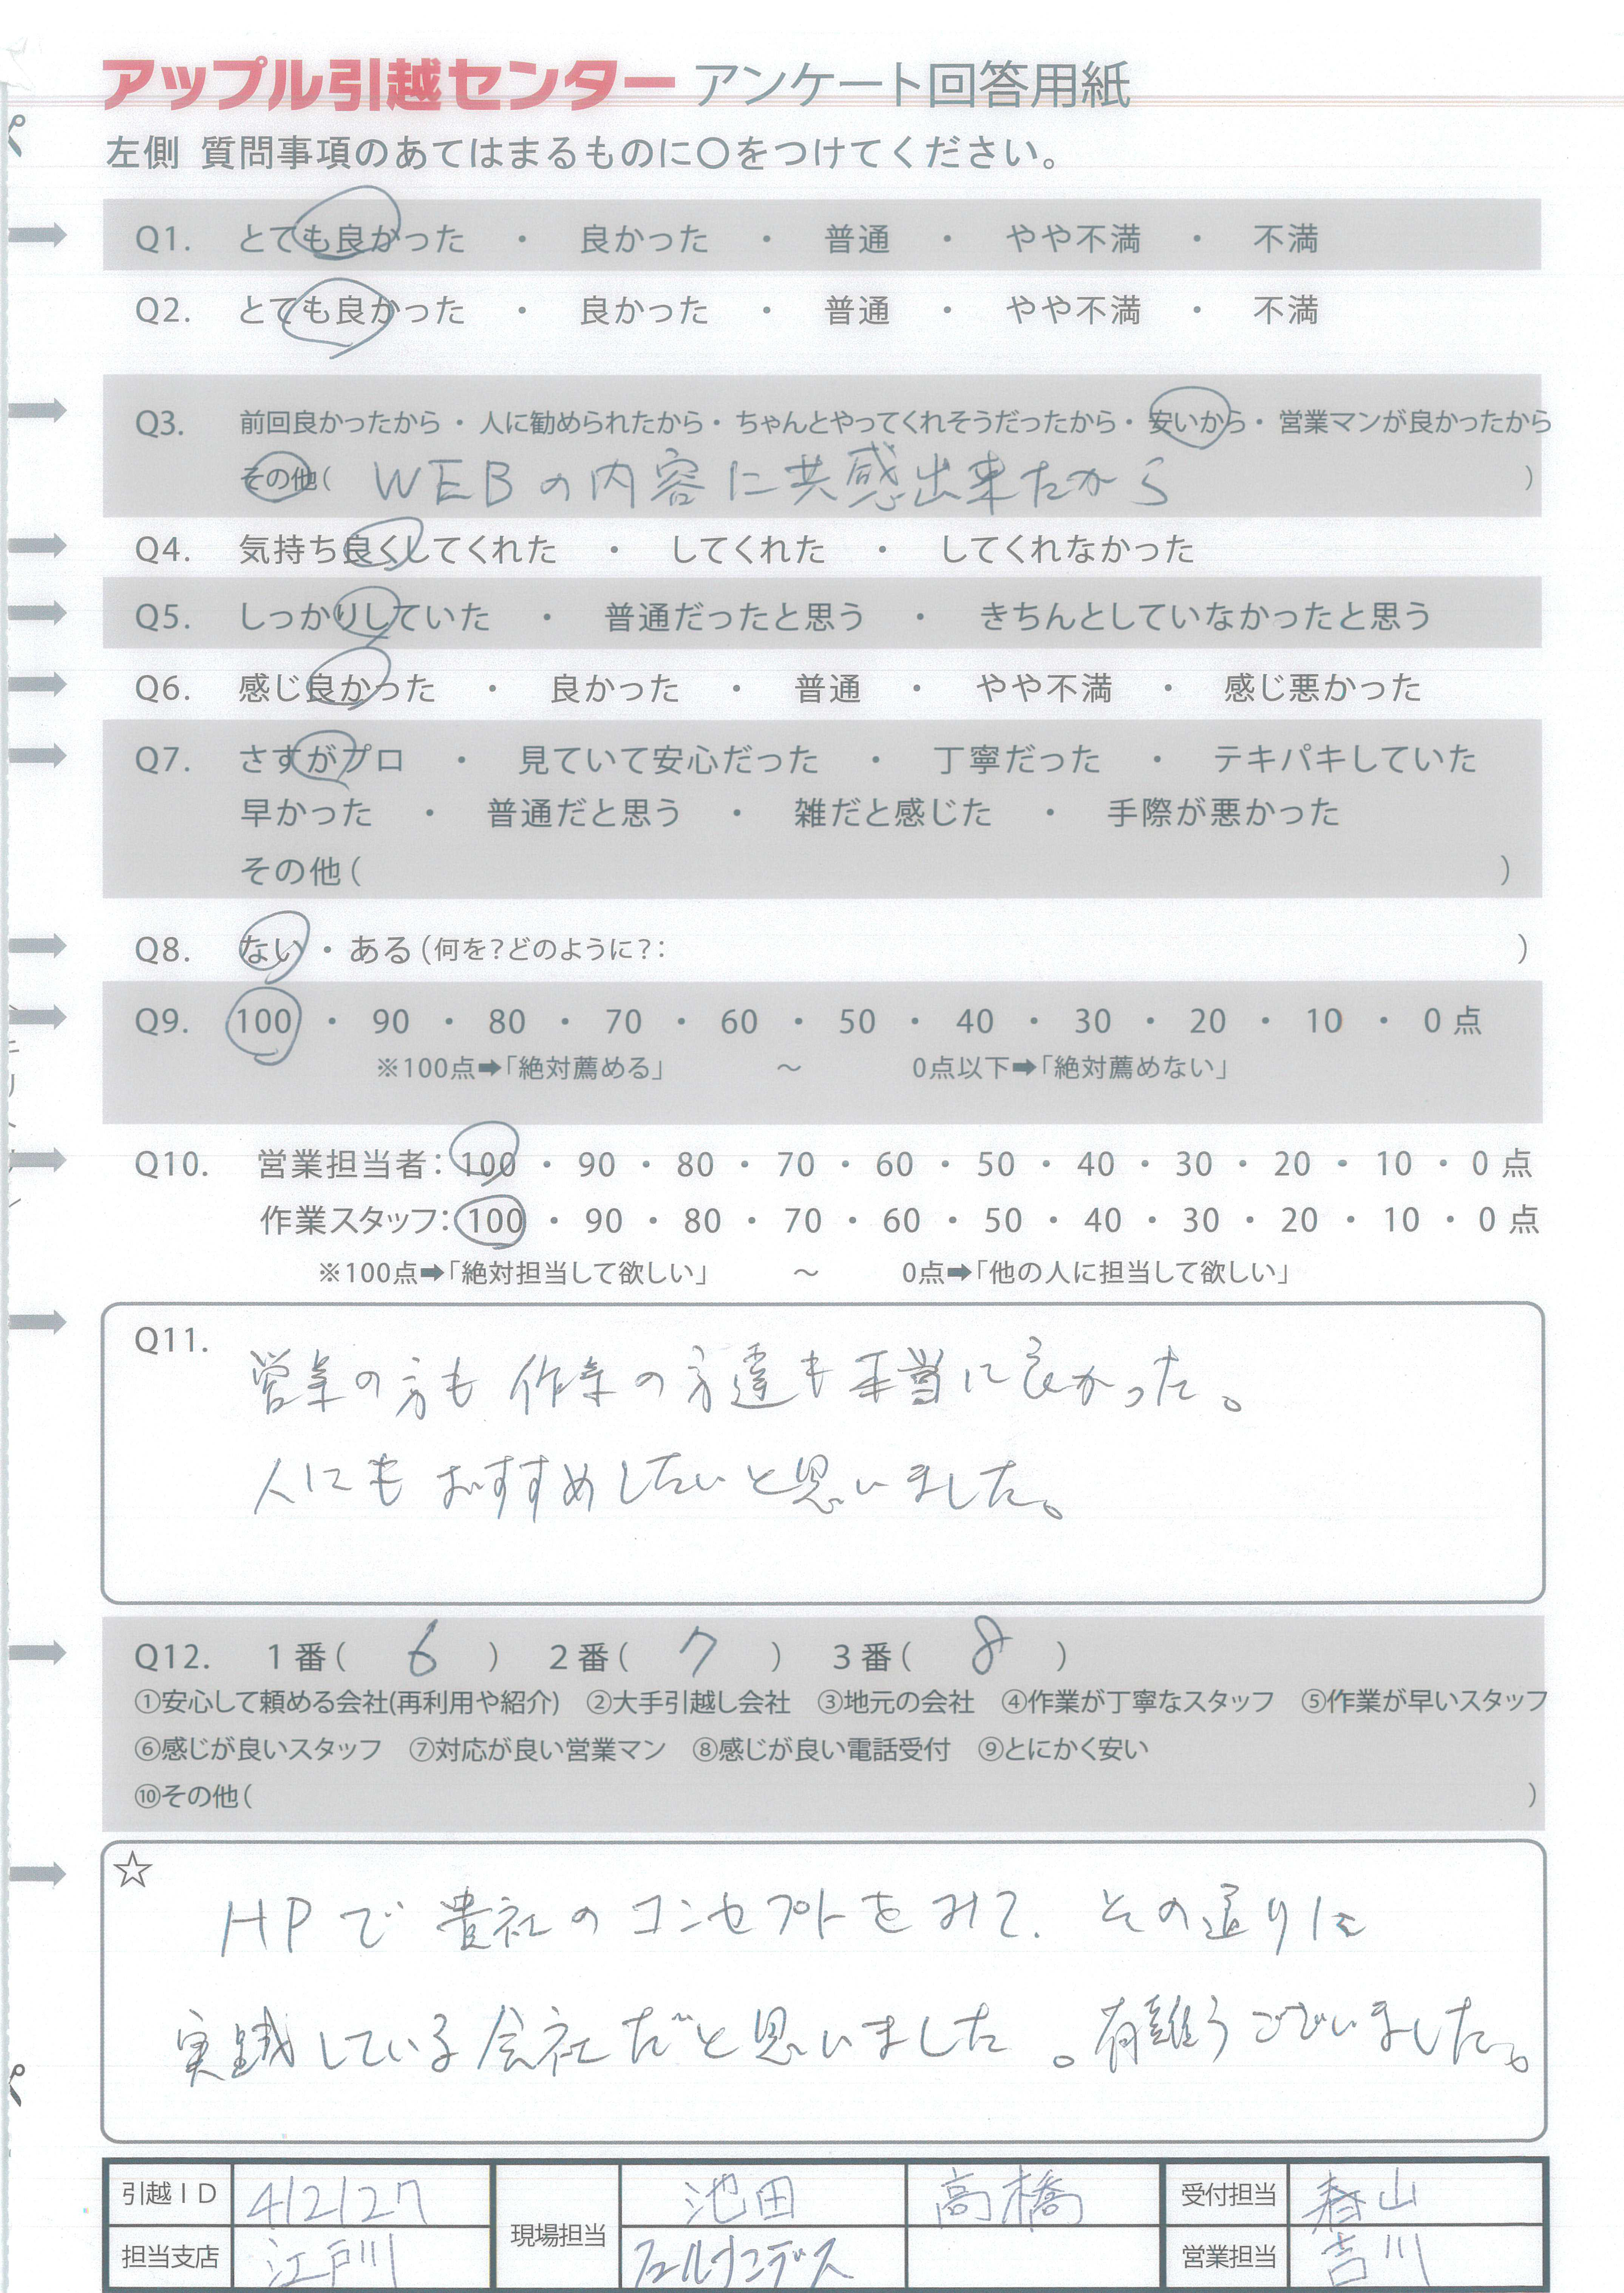 アップル引越センター アンケート回答用紙
左側 質問事項のあてはまるものに〇をつけてください。
Q1. とても良かった ・ 良かった ・ 普通 ・ やや不満 ・ 不満
Q2. とても良かった ・ 良かった ・ 普通 ・ やや不満 ・ 不満
Q3. 前回良かったから・人に勧められたから・ちゃんとやってくれそうだったから・安いから・営業マンが良かったから
その他( WEBの内容に共感出来たから )
Q4. 気持ち良くしてくれた ・ してくれた ・ してくれなかった
Q5. しっかりしていた ・ 普通だったと思う ・ きちんとしていなかったと思う
Q6. 感じ良かった ・ 良かった ・ 普通 ・ やや不満 ・ 感じ悪かった
Q7. さすがプロ ・ 見ていて安心だった ・ 丁寧だった ・ テキパキしていた
早かった ・ 普通だと思う ・ 雑だと感じた ・ 手際が悪かった
その他( )
Q8. ない ・ ある(何を?どのように?: )
Q9. 100 ・ 90 ・ 80 ・ 70 ・ 60 ・ 50 ・ 40 ・ 30 ・ 20 ・ 10 ・ 0 点
※100点➡「絶対薦める」 ～ 0点以下➡「絶対薦めない」
Q10. 営業担当者: 100 ・ 90 ・ 80 ・ 70 ・ 60 ・ 50 ・ 40 ・ 30 ・ 20 ・ 10 ・ 0 点
作業スタッフ: 100 ・ 90 ・ 80 ・ 70 ・ 60 ・ 50 ・ 40 ・ 30 ・ 20 ・ 10 ・ 0 点
※100点➡「絶対担当して欲しい」 ～ 0点➡「他の人に担当して欲しい」
Q11. 営業の方も作業の方達も本当に良かった。
人にもおすすめしたいと思いました。
Q12. 1番( 6 ) 2番( 7 ) 3番( 8 )
①安心して頼める会社(再利用や紹介) ②大手引越し会社 ③地元の会社 ④作業が丁寧なスタッフ ⑤作業が早いスタッフ
⑥感じが良いスタッフ ⑦対応が良い営業マン ⑧感じが良い電話受付 ⑨とにかく安い
⑩その他( )
☆
HPで貴社のコンセプトをみて、その通りに
実践している会社だと思いました。有難うございました。
引越ID 412127 現場担当 池田 高橋 受付担当 春山
担当支店 江戸川 フェルナンデス 営業担当 吉川